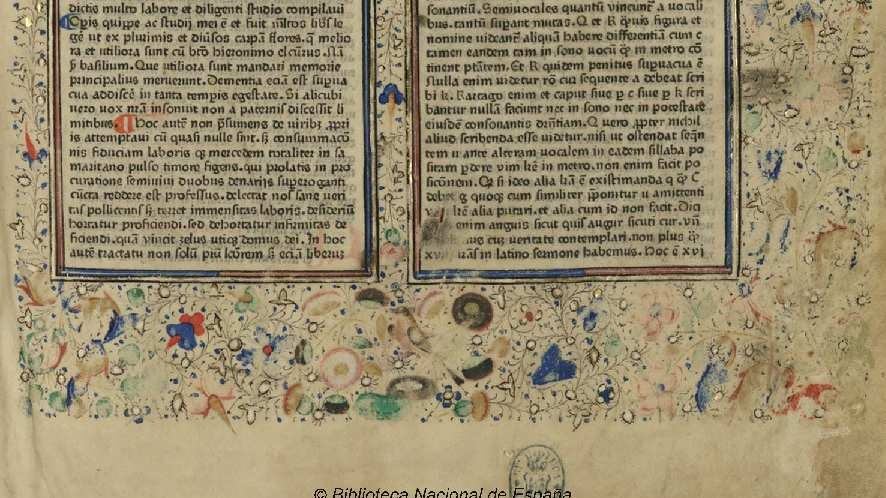 dictis multo labore et diligenti studio compilaui
Opis quippe ac studij mei e et fuit
ge ut ex plurimis et diũsos carpam flores. q melio
ra et utiliora sunt cũ bto hieronimo elcurus.
p basilium. Que utiliora sunt mandari memorie
principalius meruerunt. Dementia eciam est supua
cua addiscẽ in tanta tempis egestate. Si alicubi
uero uox nrã insonuit non a paternis discessit li
mitibus. Hoc autẽ non psumens de uiribz ppri
is attemptaui cũ quasi nulle sint. consummacõ
nis fiduciam laboris mercedem totaliter in sa
maritano pulso timore figens. qui prolatis in pro
curatione seminiui duobus denarijs superoganti
cũcta reddere est professus. delectat nos sane ueri
tas pollicentis terret immensitas laboris. desideriũ
hortatur proficiendi. sed dehortatur infirmitas de
ficiendi. quã uincit zelus utiqz domus dei. In hoc
autẽ tractatu non solũ piũ lcõrem eciam liberũ
sonantiũ. Semiuocales quantũ uincunt a uocali
bus. tantũ supant mutas. Q et K quis figura et
nomine uideant aliquã habere differentiã cum c
tamen eandem tam in sono uocũ q in metro cõ
tinent ptãtem. Et K quidem penitus supuacua ẽ
nulla enim uidetur rõ cur sequente a debeat scri
bi k. Kartago enim et caput siue p c siue p k scri
bantur nullã faciunt nec in sono nec in potestate
eiusdẽ consonantis driantiam. Q uero ppter nichil
aliud scribenda esse uidetur. nisi ut ostendat seqñ
tem u ante alteram uocalem in eadem sillaba po
sitam pdere uim in metro. non enim facit po
sicõnem. si ideo alia existimanda q C
g quoqz cum similiter pponitur u amittenti
alia putari. et alia cum id non facit. Dici
enim anguis sicut quis augur sicuti cur.
cuz ueritate contemplari. non plus q
in latino sermone habemus. Hoc ẽ xvi
© Biblioteca Nacional de España